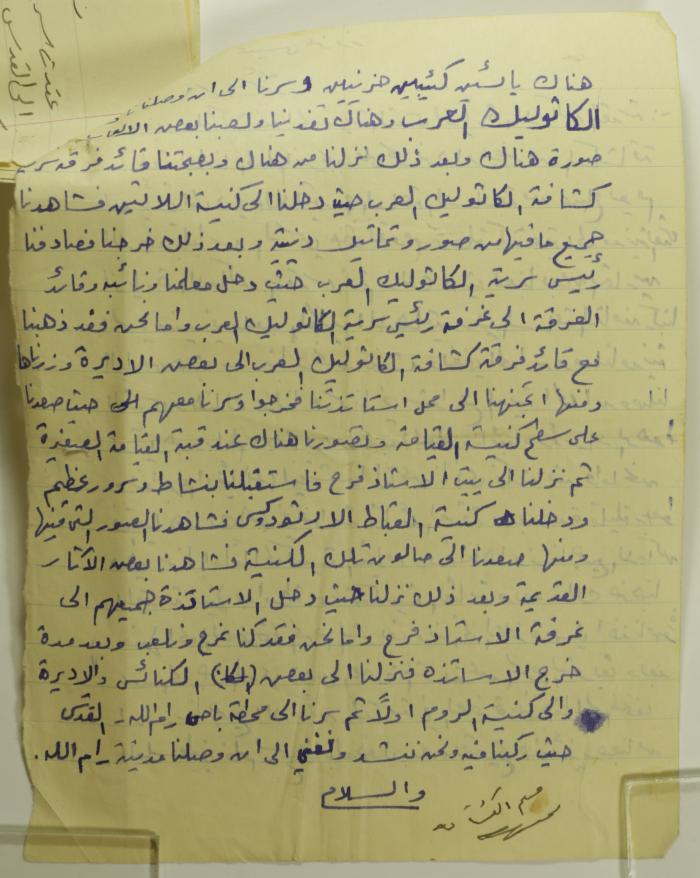 هناك يائسين كئيبين حزينين وسرنا الى ان وصلنا
الكاثوليك العرب وهناك تغدينا ولعبنا بعض الالعاب
صورة هناك وبعد ذلك نزلنا من هناك وبصحبتنا قائد فرقة سرية
كشافة الكاثوليك العرب حيث دخلنا الى كنيسة اللاتين فشاهدنا
جميع ما فيها من صور وتماثيل دينية وبعد ذلك خرجنا فصادفنا
رئيس سرية الكاثوليك العرب حيث دخل معلمنا ونائبه وقائد
الفرقة الى غرفة رئيس سرية الكاثوليك العرب واما نحن فقد ذهبنا
مع قائد فرقة كشافة الكاثوليك العرب الى بعض الاديرة وزرناها
ومنها اتجهنا الى محل استاذتنا فخرجوا وسرنا معهم الى حيث صعدنا
على سطح كنيسة القيامة وتصورنا هناك عند قبة القيامة الصغيرة
ثم نزلنا الى بيت الاستاذ فرح فاستقبلنا بنشاط وسرور عظيم
ودخلنا كنيسة القباط الارثودوكس فشاهدنا الصور التي فيها
ومنها صعدنا الى صالون تلك الكنيسة فشاهدنا بعض الآثار
القديمة وبعد ذلك نزلنا حيث دخل الاساتذة جميعهم الى
غرفة الاستاذ فرح واما نحن فقد كنا نمرح ونلعب وبعد مدة
خرج الاساتذه فنزلنا الى بعض (الكا) الكنائس والاديرة
والى كنيسة الروم اولاً ثم سرنا الى محطة باص رام الله - القدس
حيث ركبنا فيه ونحن ننشد ونغني الى ان وصلنا مدينة رام الله.
والسلام
الى القدس